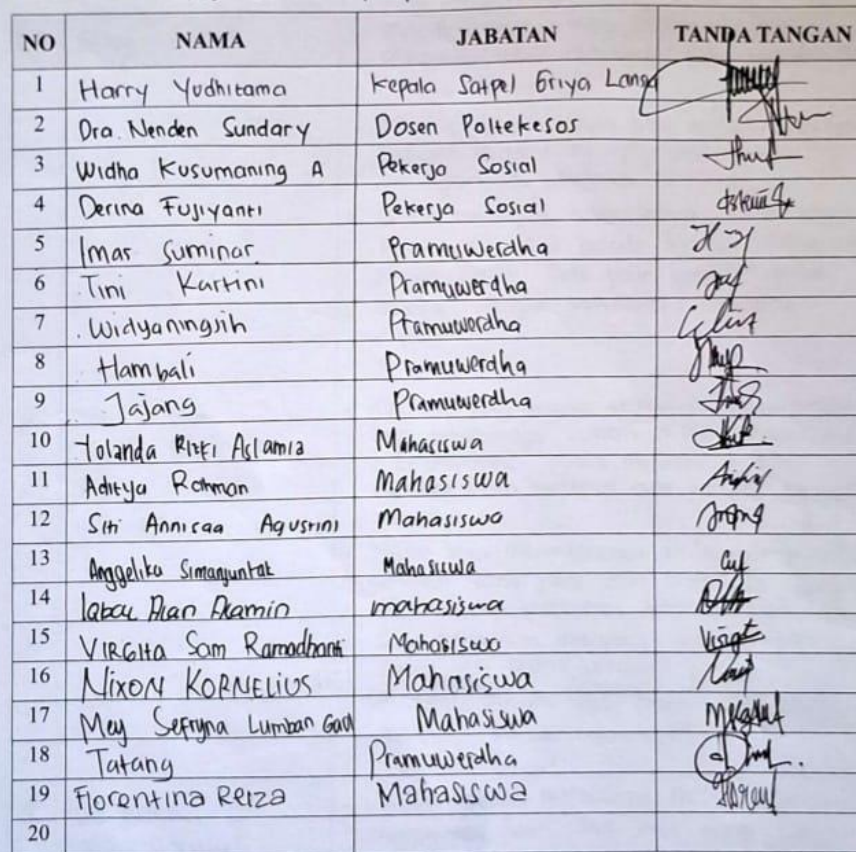 NO NAMA JABATAN TANDA TANGAN
1 Harry Yudhitama Kepala Satpel Griya Lansia
2 Dra. Nenden Sundary Dosen Poltekesos
3 Widha Kusumaning A Pekerja Sosial
4 Derina Fujiyanti Pekerja Sosial
5 Imar Suminar Pramuwerdha
6 Tini Kartini Pramuwerdha
7 Widyaningsih Pramuwerdha
8 Hambali Pramuwerdha
9 Jajang Pramuwerdha
10 Yolanda Rizki Aslamia Mahasiswa
11 Aditya Rohman Mahasiswa
12 Siti Annisaa Agustini Mahasiswa
13 Anggelika Simanjuntak Mahasiswa
14 Iqbal mahasiswa
15 VIRGIta Sam Ramadhanti Mahasiswa
16 NIXON KORNELIUS Mahasiswa
17 Mey Sefryna Lumban Gaol Mahasiswa
18 Tatang Pramuwerdha
19 Florentina Reiza Mahasiswa
20